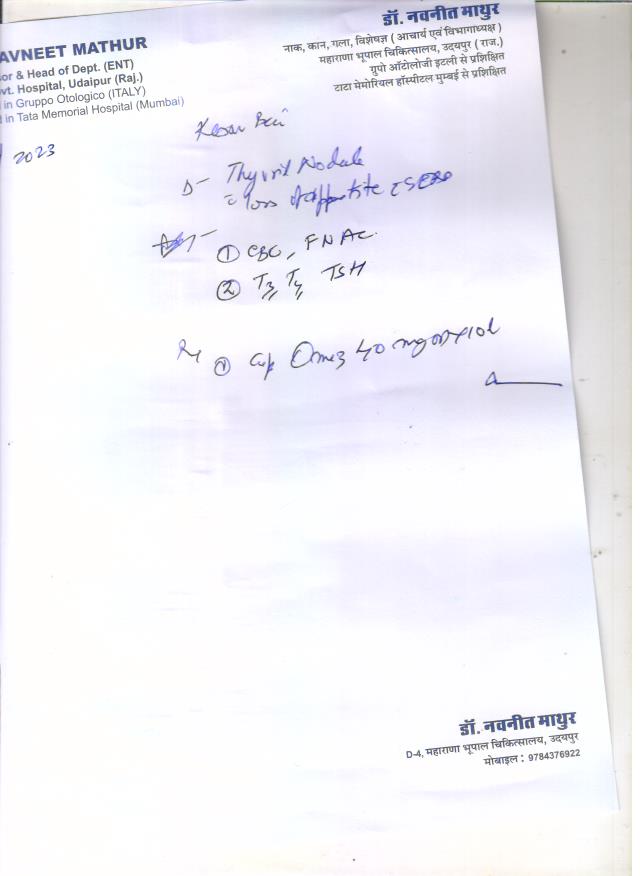 AVNEET MATHUR
or & Head of Dept. (ENT)
vt. Hospital, Udaipur (Raj.)
in Gruppo Otologico (ITALY)
d in Tata Memorial Hospital (Mumbai)
डॉ. नवनीत माथुर
नाक, कान, गला, विशेषज्ञ ( आचार्य एवं विभागाध्यक्ष )
महाराणा भूपाल चिकित्सालय, उदयपुर ( राज.)
ग्रुपो ऑटोलोजी इटली से प्रशिक्षित
टाटा मेमोरियल हॉस्पीटल मुम्बई से प्रशिक्षित
2023
Kesar Bai
D- Thyroid Nodule
loss of appetite
① CBC, FNAC
② T3, T4 TSH
① Cap Omez 40 mg
डॉ. नवनीत माथुर
D-4, महाराणा भूपाल चिकित्सालय, उदयपुर
मोबाइल : 9784376922